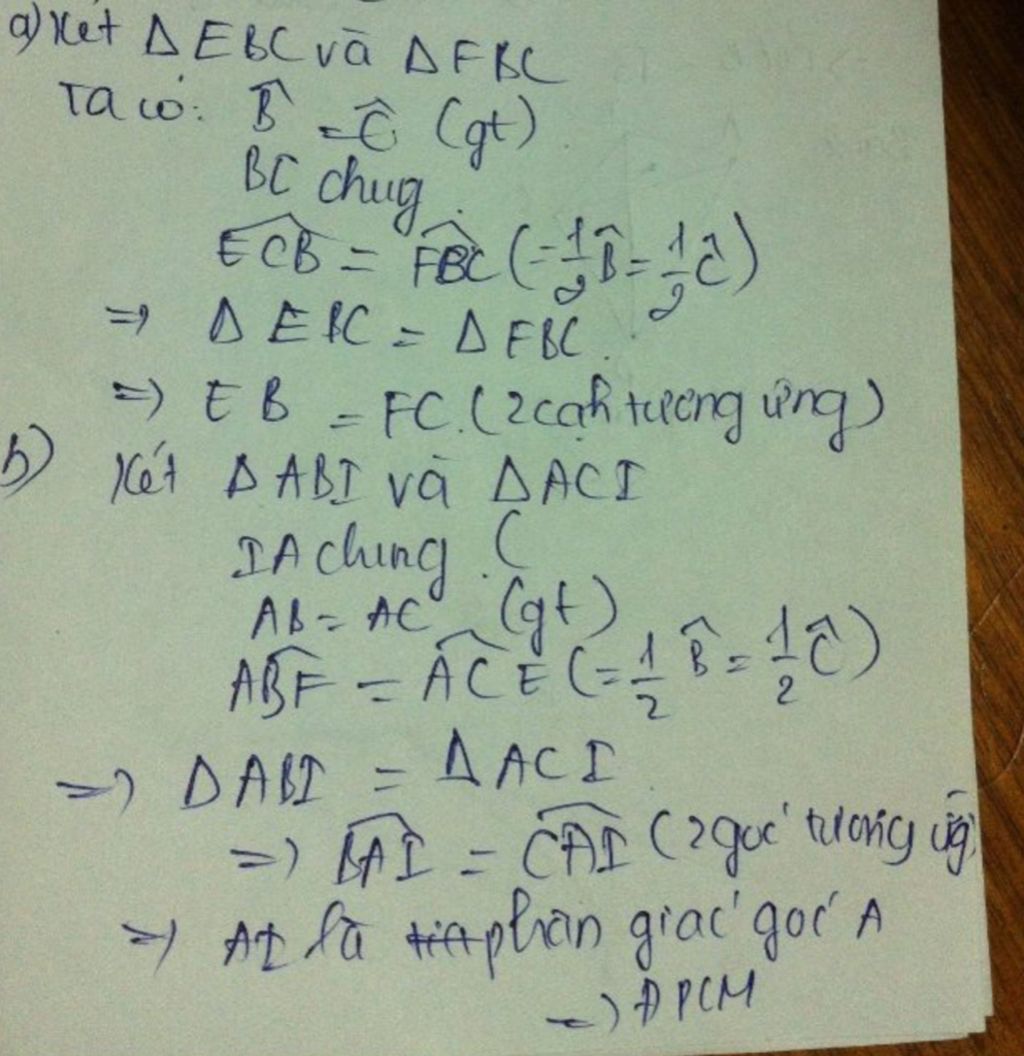 a) Xét Δ EBC và Δ FBC
Ta có: B̂ = Ĉ (gt)
BC chug.
ECB̂ = FBĈ (= 1/2 B̂ = 1/2 Ĉ)
=> Δ EBC = Δ FBC.
=> EB = FC. (2 cạh tương ứng)
b) Xét Δ ABI và Δ ACI
IA chung. (
AB = AC (gt)
ABF̂ = AĈE (= 1/2 B̂ = 1/2 Ĉ)
=> Δ ABI = Δ ACI
=> BAÎ = CAÎ (2 góc tương ứg)
=> AI là phân giác góc A
=> ĐPCM